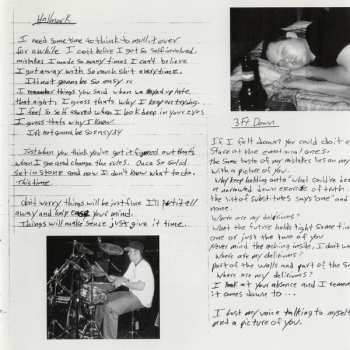 Hallmark
I need some time to think to mull it over
for awhile I can't believe I got so self involved.
mistakes I made so many times I can't believe
I got away with so much shit everytime.
It'll not gonna be so easy
I remember things you said when we stayed up late
that night, I guess that's why I keep on trying...
I feel so self assured when I look deep in your eyes
I guess that's why I know
It's not gonna be so easy
Just when you think you've got it figured out that's
when I go and change the rules. Once so solid
set in stone and now I don't know what to do.
This time.
don't worry things will be just fine I'll put it all
away and help your mind.
Things will make sense just give it time.
3 Ft Down
If I fell down you could do it
Stare at the emotional ones.
the same taste of my mistakes lies on my
with a picture of you.
Why keep holding onto "what could've been
or unraveled down example of truth
the list of substitutes says "one" and
none
Where are my deliriums?
What the future holds tight some time
one or just the two of you
Never mind the aching inside. I don't wa
Where are my deliriums?
part of the walls and part of the so
Where are my deliriums?
I look at your absence and I reme
it comes down to...
I lost my voice talking to myself
and a picture of you.